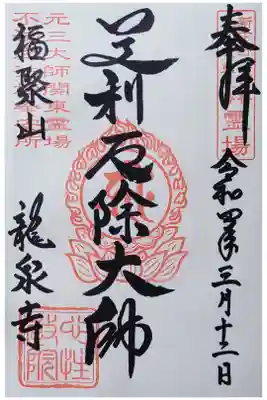 奉拝
令和四年三月十二日
足利厄除大師
元三大師関東霊場
福聚山
龍泉寺